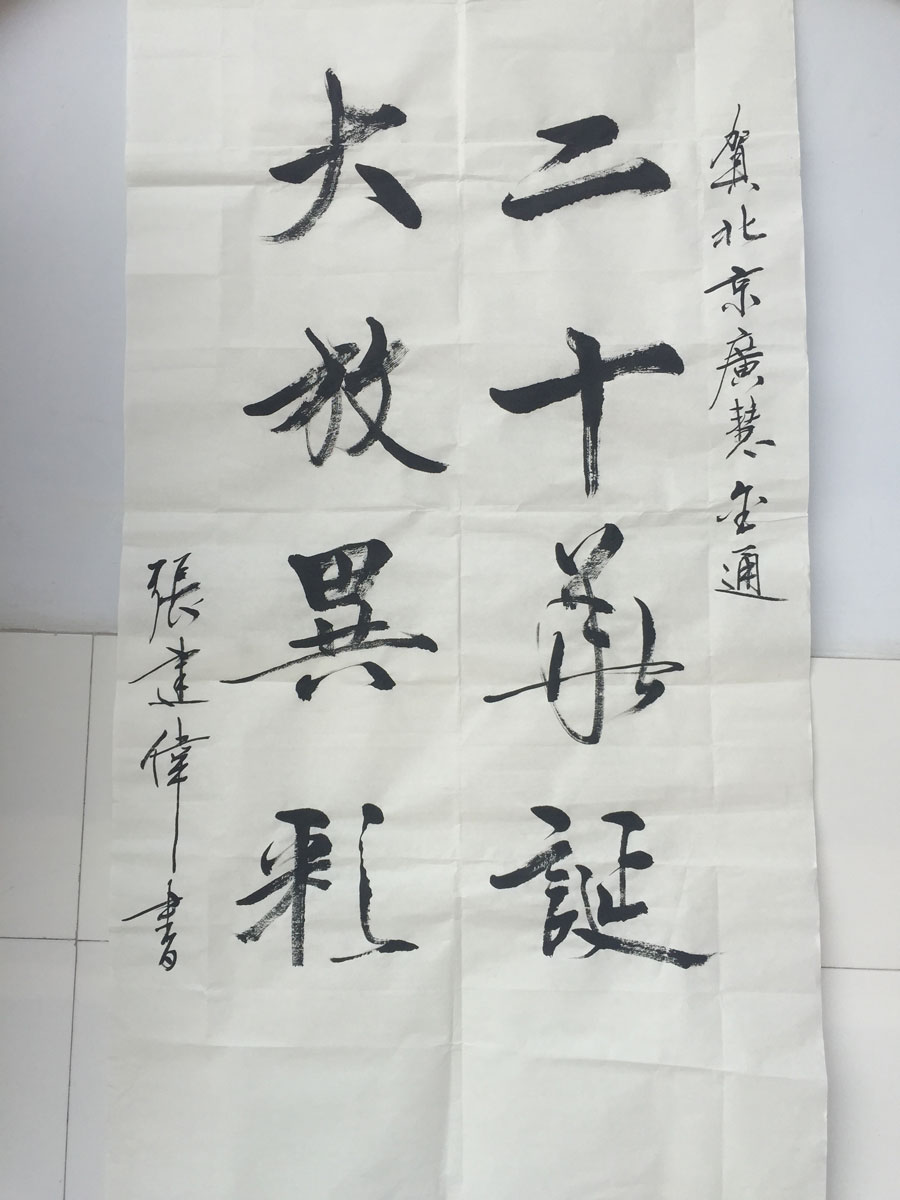 賀北京廣慧金通
二十華誕
大放異彩
張建偉書